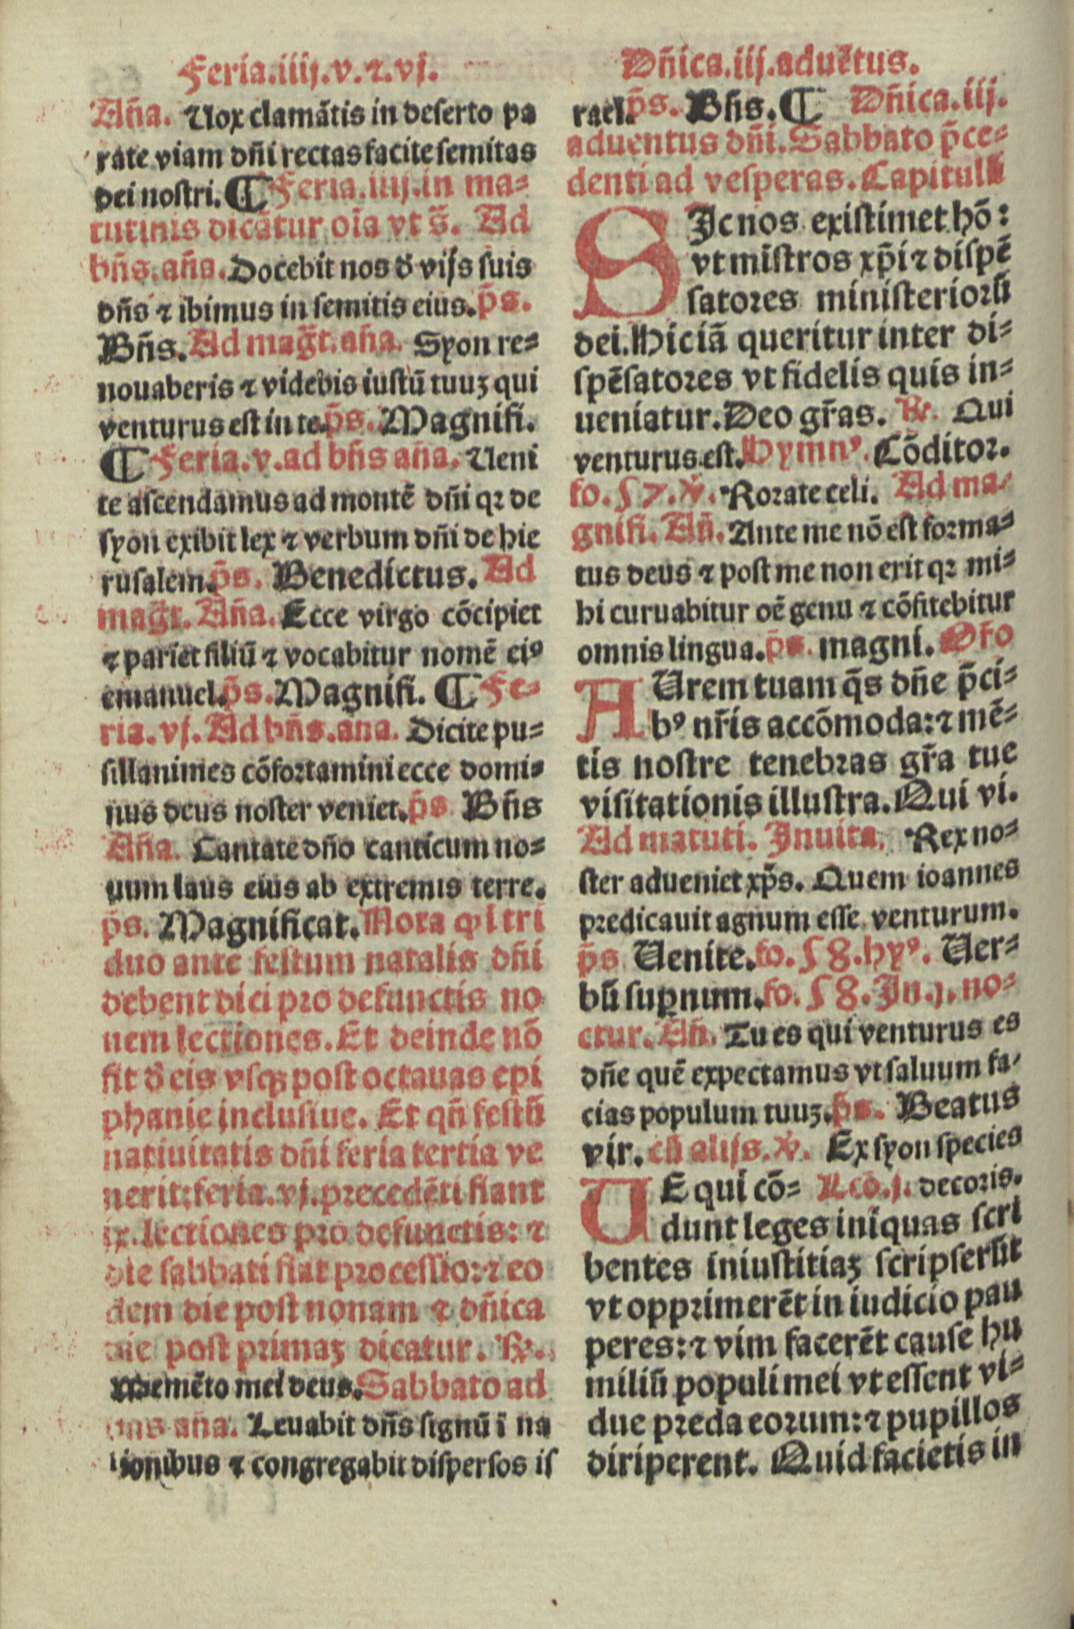 Feria.iiij.v.⁊.vj.
Añа. Uox clamãtis in deserto pa
rate viam dñi rectas facite semitas
dei nostri. ¶ Feria.iiij.in ma-
tutinis dicãtur oĩa vt s̃. Ad
bñs.aña. Docebit nos d̃ vijs suis
dñs ⁊ ibimus in semitis eius. p̃s.
Bñs. Ad mag̃t.aña. Syon re-
nouaberis ⁊ videbis iustũ tuuȝ qui
venturus est in te. p̃s. Magnifi.
¶ Feria.v.ad bñs aña. Ueni
te ascendamus ad montẽ dñi qꝛ de
syon exibit lex ⁊ verbum dñi de hie
rusalem. p̃s. Benedictus. Ad
mag̃t. Aña. Ecce virgo cõcipiet
⁊ pariet filiũ ⁊ vocabitur nomẽ eiꝰ
emanuel. p̃s. Magnifi. ¶ Fe-
ria.vj. Ad bñs.aña. Dicite pu-
sillanimes cõfortamini ecce domi-
nus deus noster veniet. p̃s Bñs
Aña. Cantate dño canticum no-
uum laus eius ab extremis terre.
p̃s. Magnificat. Nota ꝙ i tri
duo ante festum natalis dñi
debent dici pro defunctis no
uem lectiones. Et deinde nõ
fit d̃ eis vsqꝫ post octauas epi
phanie inclusiue. Et qñ festũ
natiuitatis dñi feria tertia ve
nerit: feria.vj. precedẽti fiant
ix.lectiones pro defunctis: ⁊
die sabbati fiat processio: ⁊ eo
dem die post nonam ⁊ dñica
die post primaȝ dicatur. ℟.
Memẽto mei deus. Sabbato ad
bñs aña. Leuabit dñs signũ ĩ na
tionibus ⁊ congregabit dispersos is
Dñica.iij.aduẽtus.
rael. p̃s. Bñs. ¶ Dñica.iij.
aduentus dñi. Sabbato p̃ce-
denti ad vesperas. Capitulũ
SIc nos existimet hõ:
vt mĩstros xp̃i ⁊ dispẽ
satores ministeriorũ
dei. Hic iã queritur inter di-
spẽsatores vt fidelis quis in-
ueniatur. Deo gr̃as. ℟. Qui
venturus est. Hymnꝰ. Cõditor.
fo.57.℣. Rorate celi. Ad ma-
gnifi. Añ. Ante me nõ est forma-
tus deus ⁊ post me non erit qꝛ mi-
hi curuabitur oẽ genu ⁊ cõfitebitur
omnis lingua. p̃s. magni. Or̃o
AUrem tuam q̃s dñe p̃ci-
bꝰ nr̃is accõmoda: ⁊ mẽ-
tis nostre tenebras gr̃a tue
visitationis illustra. Qui vi.
Ad matuti. Inuita. Rex no-
ster adueniet xp̃s. Quem ioannes
predicauit agnum esse venturum.
p̃s Uenite. fo.58. hyꝰ. Uer-
bũ sup̱num. fo.58. In.j.no-
ctur. Añ. Tu es qui venturus es
dñe quẽ expectamus vt saluum fa-
cias populum tuuȝ. p̃s. Beatus
vir. cũ alijs.℣. Ex syon species
UE qui cõ- Lcõ.j. decoris.
dunt leges iniquas scri
bentes iniustitiaȝ scripserũt
vt opprimerẽt in iudicio pau
peres: ⁊ vim facerẽt cause hu
miliũ populi mei vt essent vi-
due preda eorum: ⁊ pupillos
diriperent. Quid facietis in